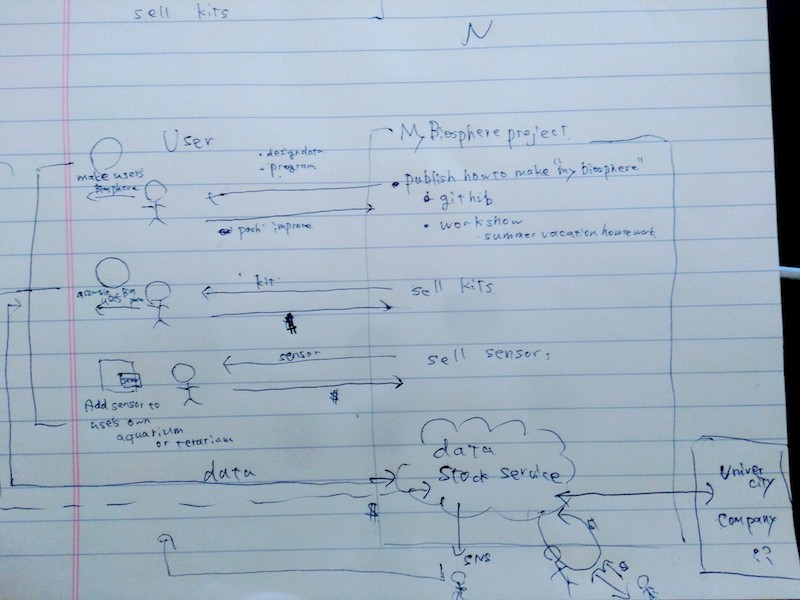 sell kits
N
User
My Biosphere project
• design data
• program
make users
Biosphere
• publish how to make "my biosphere"
• githib
• push improve
• workshow
summer vacation homework
kit
sell kits
$
sensor
sell sensor
$
Add sensor to
uses own
aquarium
or terarium
data
data
Stock service
$
Univer
city
Company
??
SNS
$
$